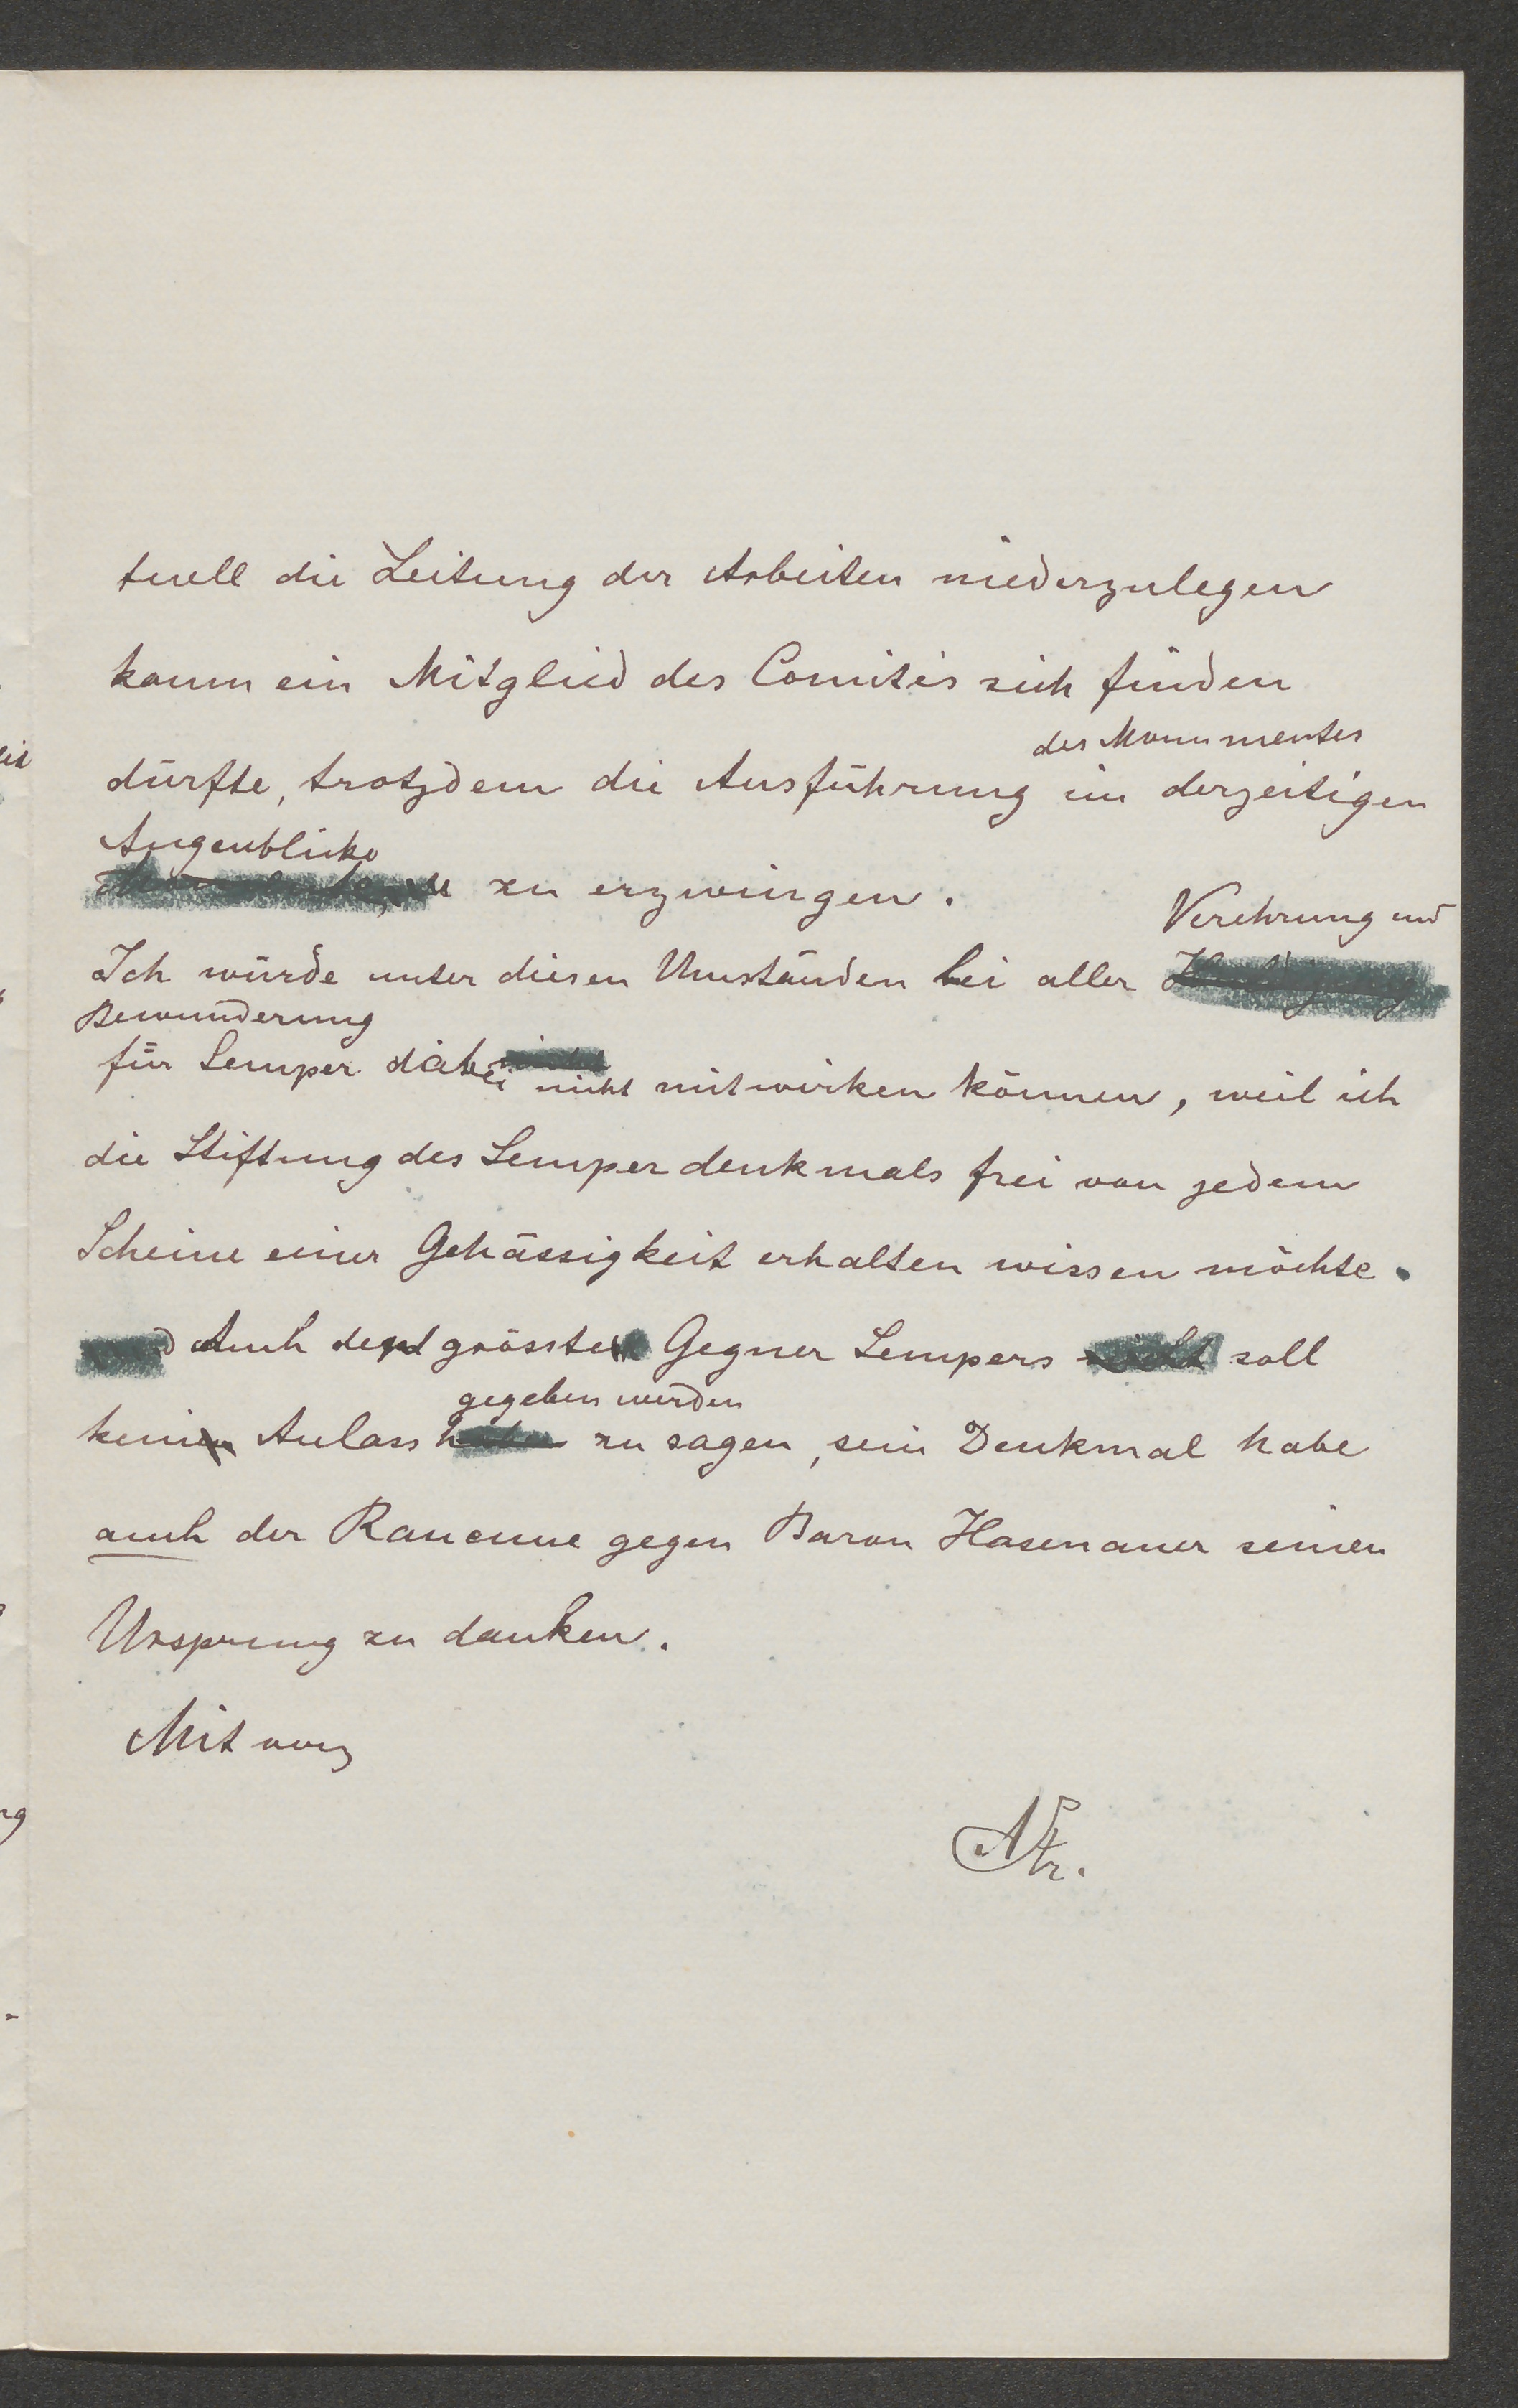 tuell die Leitung der Arbeiten niederzulegen
kaum ein Mitglied des Comités sich finden
des Monumentes
dürfte, trotzdem die Ausführung im derzeitigen
Augenblicke
zu erzwingen.
Verehrung und
Ich würde unter diesen Umständen bei aller
Bewunderung
für Semper dabei nicht mitwirken können, weil ich
die Stiftung des Semperdenkmals frei von jedem
Scheine einer Gehässigkeit erhalten wissen möchte.
Auch dem grössten Gegner Sempers nicht soll
gegeben werden
kein Anlass haben zu sagen, sein Denkmal habe
auch der Rancune gegen Baron Hasenauer seinen
Ursprung zu danken.
Mit vorz